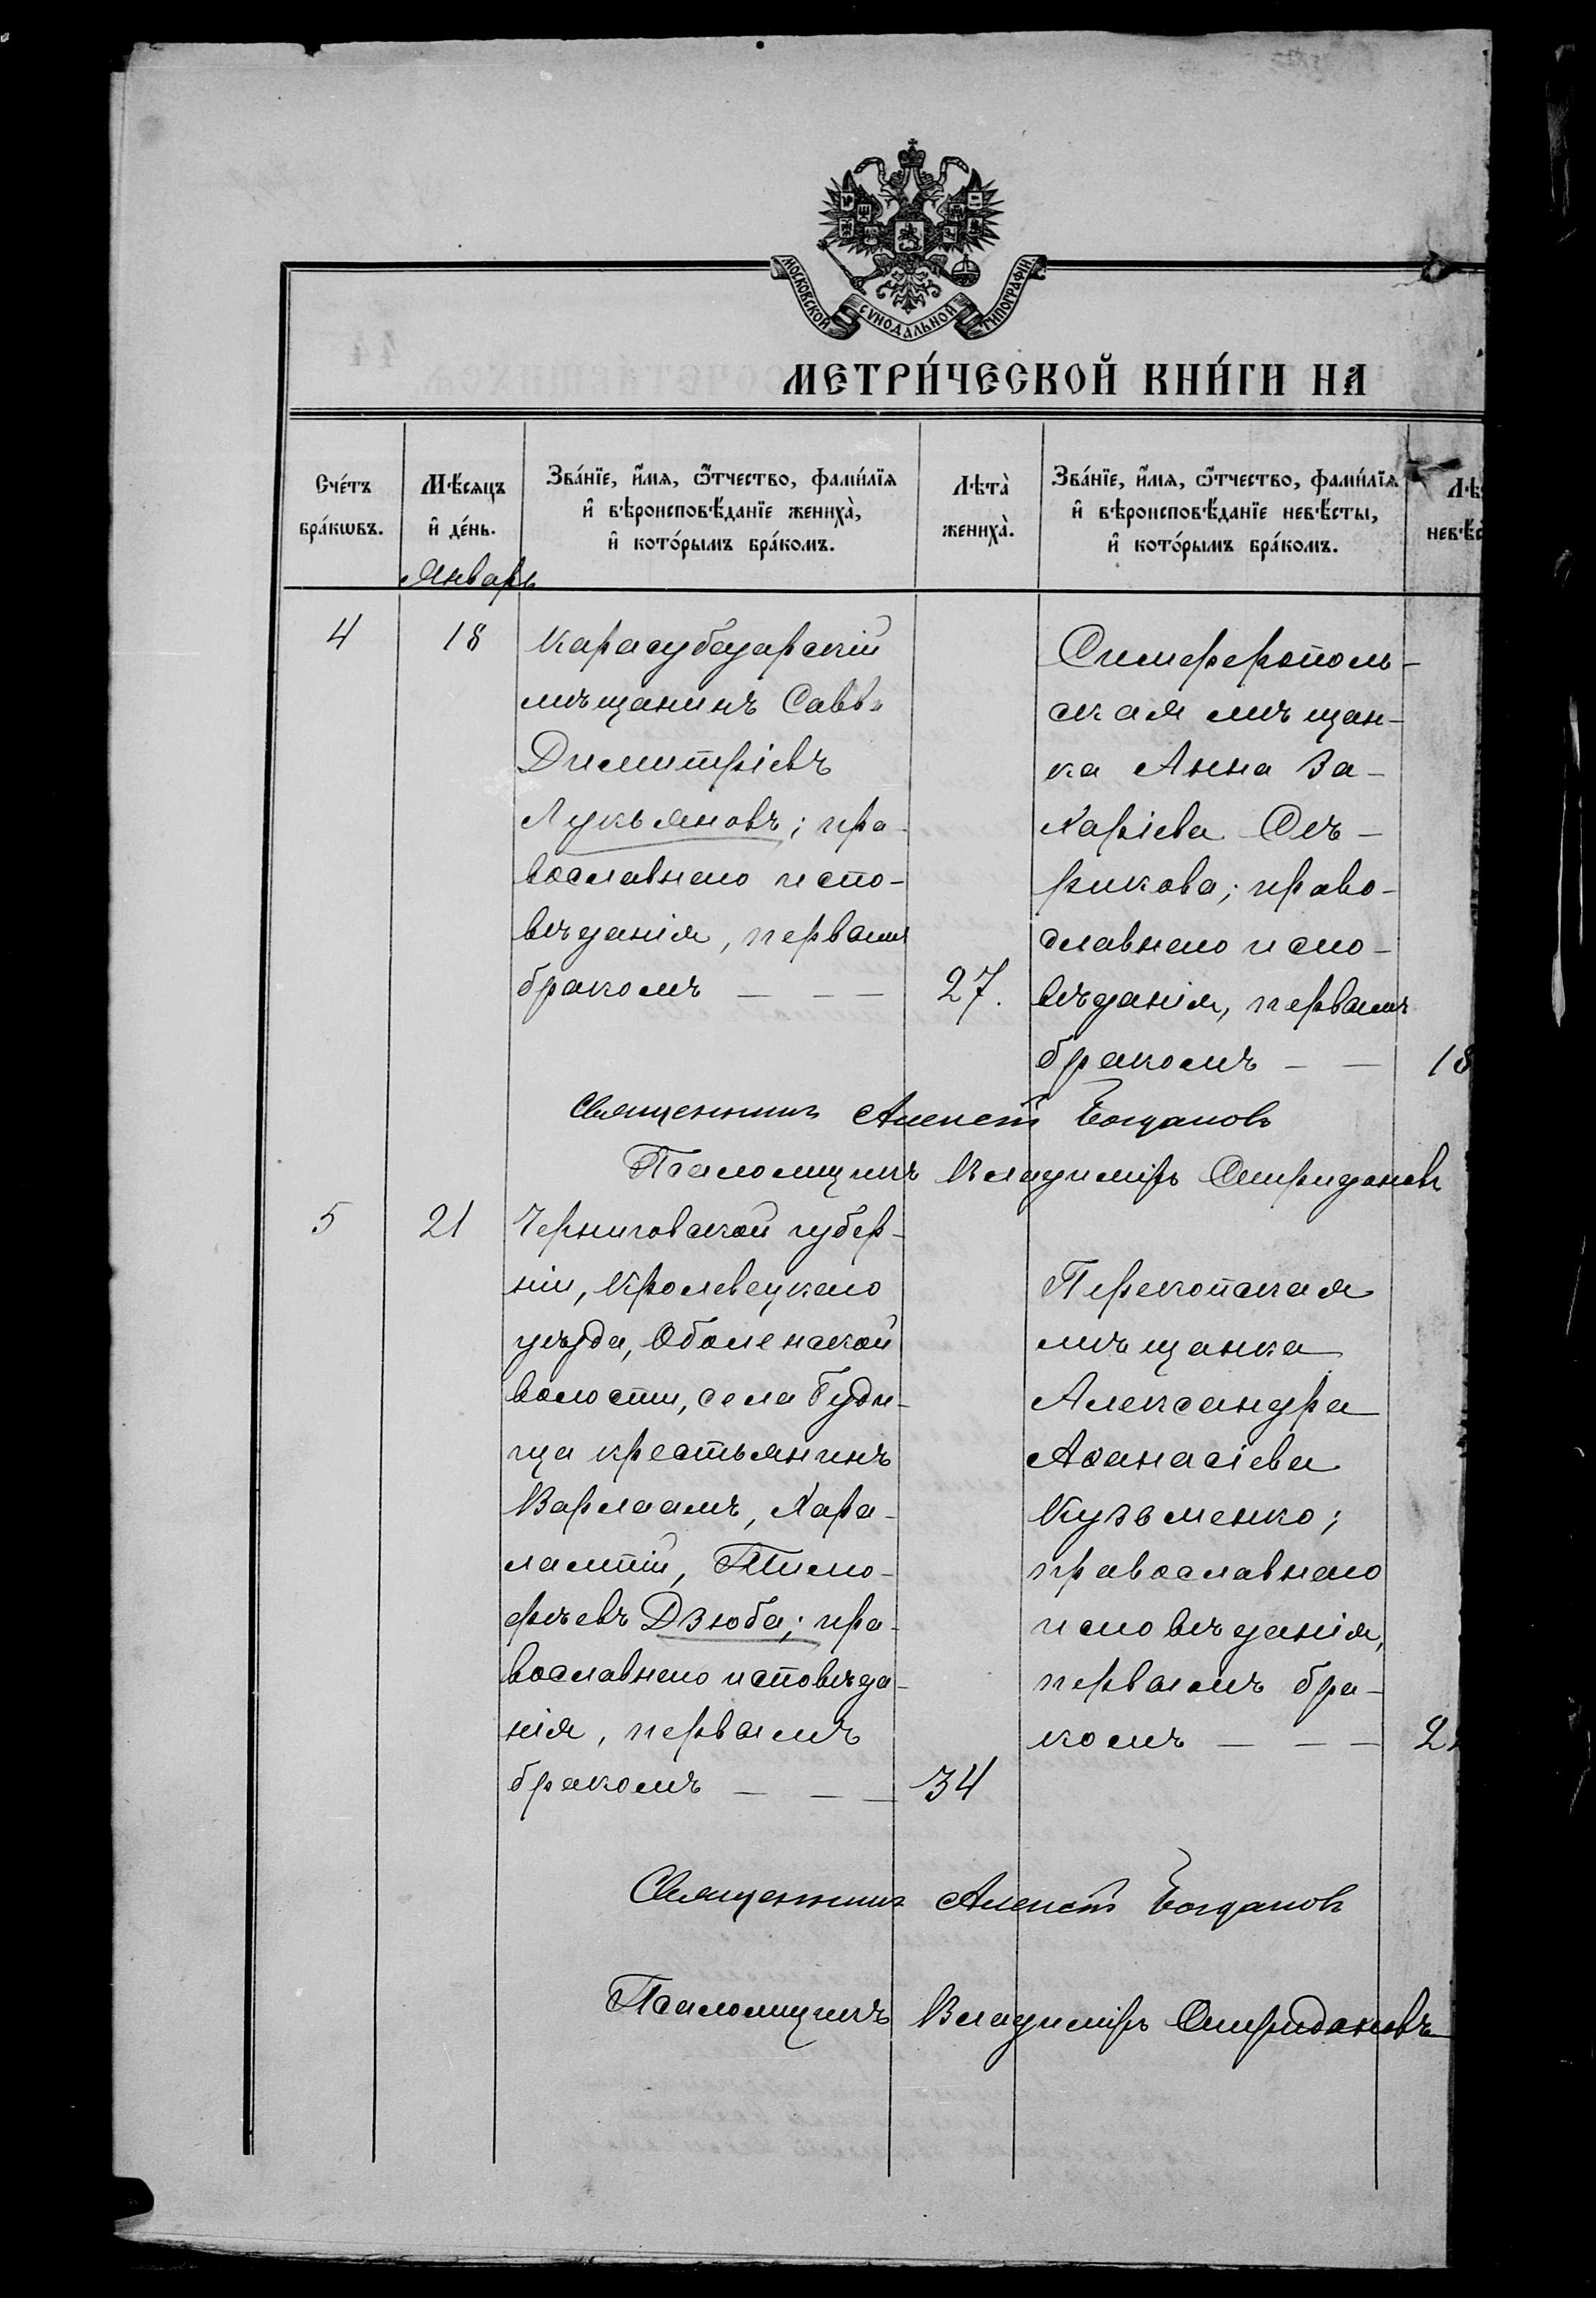 МОСКОВСКОЙ СѴНОДАЛЬНОЙ ТИПОГРАФІИ
МЕТРИ́ЧЕСКОЙ КНИ́ГИ НА
Сче́тъ бра́кѡвъ.
Мѣ́сяцъ и де́нь.
Зва́нїе, и́мя, ѻ҆́тчество, фами́лїя
и вѣроисповѣ́данїе жениха̀,
и кото́рымъ бра́комъ.
Лѣта̀ жениха̀.
Зва́нїе, и́мя, ѻ҆́тчество, фами́лїя
и вѣроисповѣ́данїе невѣ́сты,
и кото́рымъ бра́комъ.
Январь
4
18
Карасубазарскій
мѣщанинъ Савва
Димитріевъ
Лукьяновъ; пра-
вославнаго испо-
вѣданія, первымъ
бракомъ — — —
27.
Симферополь-
ская мѣщан-
ка Анна За-
харіева
право-
славнаго испо-
вѣданія, первымъ
бракомъ — —
18
Священникъ Алексѣй Богдановъ
Псаломщикъ Владиміръ Спиридоновъ
5
21
Черниговской губер-
ніи, Кролевецкаго
уѣзда, Оболенской
волости, села Буди-
ща крестьянинъ
Варлаамъ, Хара-
лампій, Тимо-
фѣевъ Дзюба; пра-
вославнаго исповѣда-
нія, первымъ
бракомъ — — —
34
Перекопская
мѣщанка
Александра
Аѳанасіева
Кузьменко;
православнаго
исповѣданія,
первымъ бра-
комъ — — —
Священникъ Алексѣй Богдановъ
Псаломщикъ Владиміръ Спиридоновъ